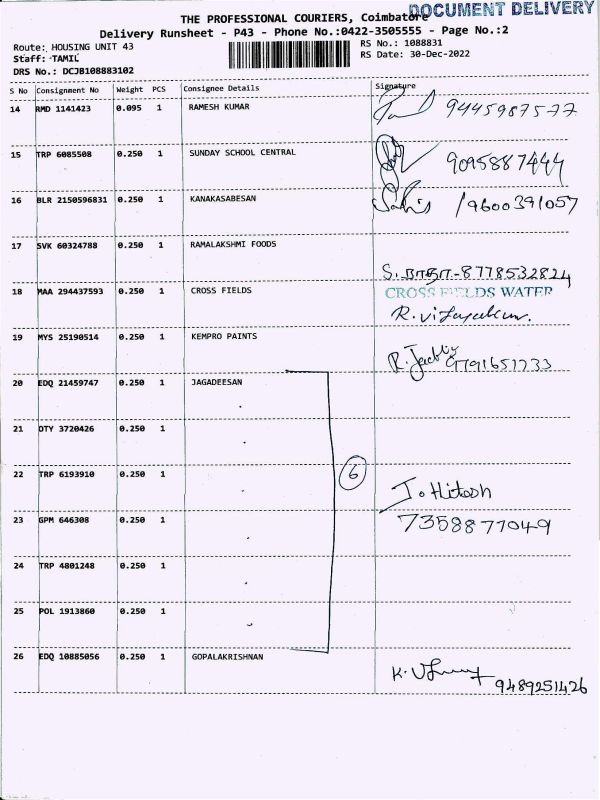 THE PROFESSIONAL COURIERS, Coimbatore
DOCUMENT DELIVERY
Delivery Runsheet - P43 - Phone No.:0422-3505555 - Page No.:2
Route: HOUSING UNIT 43
RS No.: 1088831
Staff: TAMIL
RS Date: 30-Dec-2022
DRS No.: DCJB108883102
S No Consignment No Weight PCS Consignee Details Signature
14 RMD 1141423 0.095 1 RAMESH KUMAR 9445987577
15 TRP 6085508 0.250 1 SUNDAY SCHOOL CENTRAL 9095887444
16 BLR 2150596831 0.250 1 KANAKASABESAN /9600391057
17 SVK 60324788 0.250 1 RAMALAKSHMI FOODS
S. -8778532824
18 MAA 294437593 0.250 1 CROSS FIELDS CROSS FIELDS WATER
19 MYS 25190514 0.250 1 KEMPRO PAINTS
9791651733
20 EDQ 21459747 0.250 1 JAGADEESAN
21 DTY 3720426 0.250 1
22 TRP 6193910 0.250 1 6
J. Hitesh
23 GPM 646308 0.250 1 7358877049
24 TRP 4801248 0.250 1
25 POL 1913860 0.250 1
26 EDQ 10885056 0.250 1 GOPALAKRISHNAN
9489251426